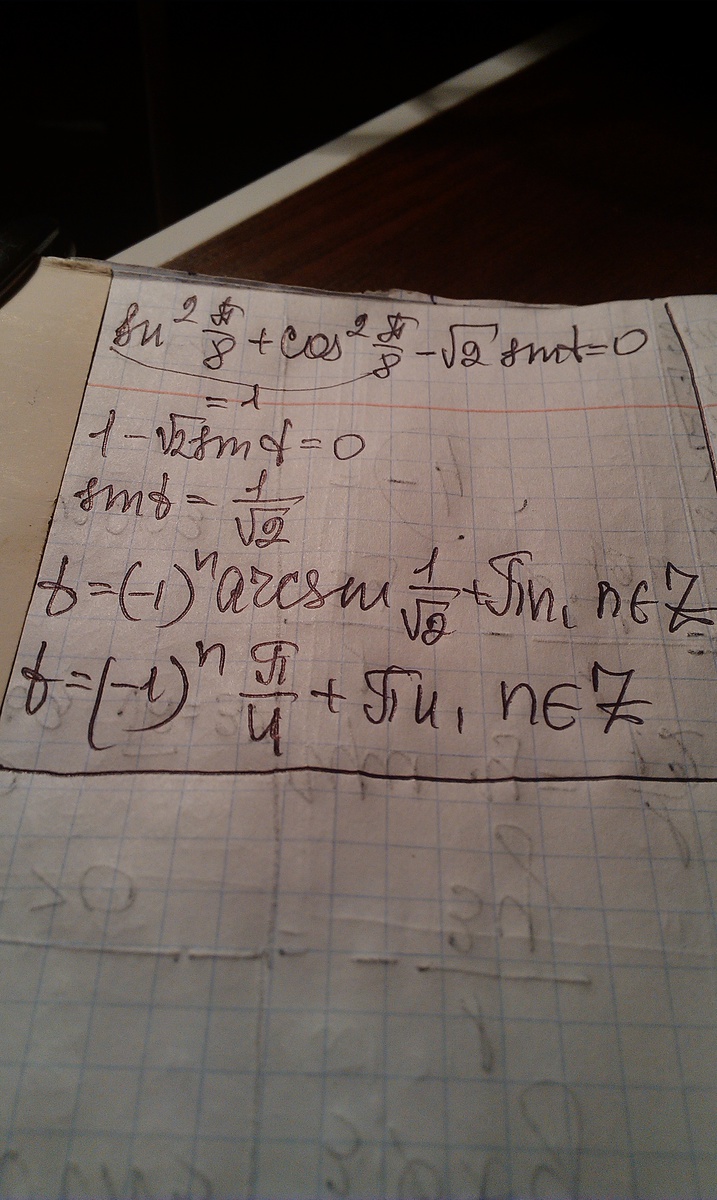 sin² π/8 + cos² π/8 - √2 sin t = 0
= 1
1 - √2 sin t = 0
sin t = 1/√2
t = (-1)ⁿ arcsin 1/√2 + πn, n ∈ Z
t = (-1)ⁿ π/4 + πn, n ∈ Z